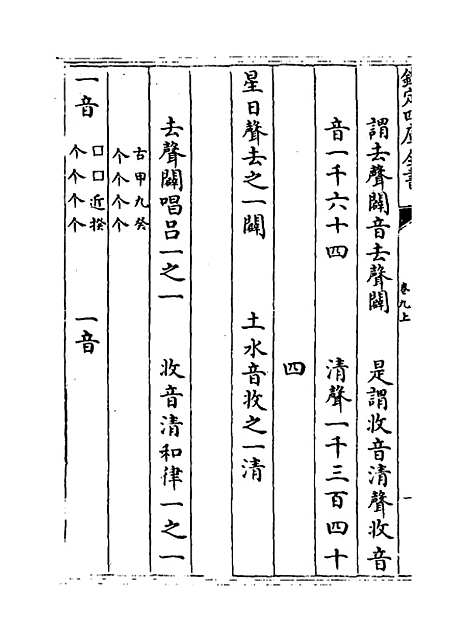 欽定四庫全書
卷九上
謂去聲闢音去聲闢 是謂收音清聲收音
音一千六十四 清聲一千三百四十
四
星日聲去之一闢 土水音收之一清
去聲闢唱呂一之一 收音清和律一之一
古甲九癸
个个个个
一音 一音
口口近揆
个个个个